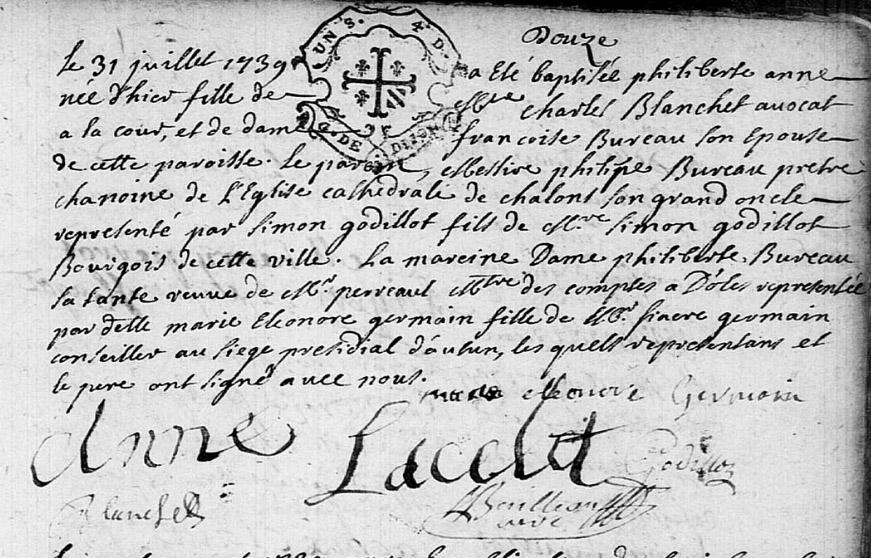 Douze
UN S. 4 D.
G. DE DIJON
le 31 juillet 1739 a eté baptisée philiberte anne
née d'hier fille de Mtre charles Blanchet avocat
a la cour, et de dame francoise Bureau son Epouse
de cette paroisse. le parein, Messire philipe Bureau pretre
chanoine de l'Eglise cathedrale de chalons son grand oncle
representé par simon godillot fils de Mre simon godillot
Bourgois de cette ville. La mareine Dame philiberte Bureau
sa tante veuve de Mr perreault Mtre des comptes a Dôles representée
par delle marie Eleonore germain fille de Mr germain
conseiller au siege presidial d'autun, les quels representans et
le pere ont signé avec nous.
marie eleonore Germain
Anne Lacolt Godillot
Blanchet